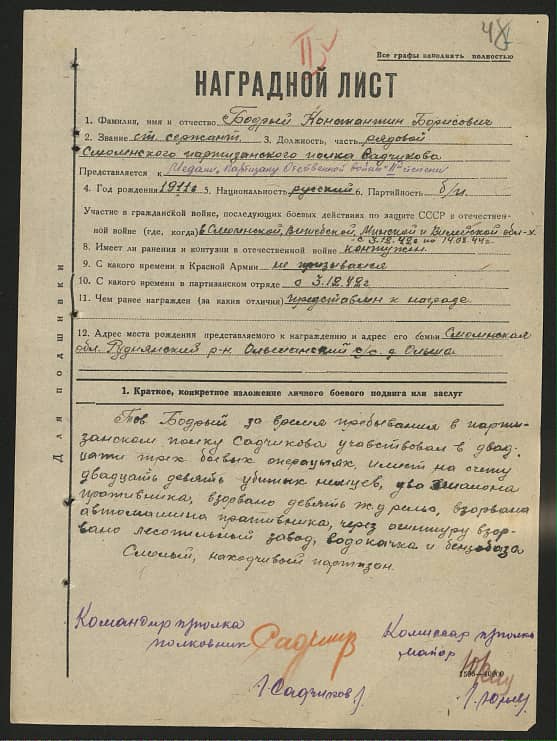 48
Все графы заполнять полностью
НАГРАДНОЙ ЛИСТ
1. Фамилия, имя и отчество Бодрый Константин Борисович
2. Звание ст. сержант 3. Должность, часть рядовой
Смоленского партизанского полка Садчикова
Представляется к Медали, Партизану Отечественной войны II степени
4. Год рождения 1911 г 5. Национальность русский 6. Партийность б/п.
Участие в гражданской войне, последующих боевых действиях по защите СССР и отечествен-
ной войне (где, когда) в Смоленской, Витебской, Минской и Вилейской обл-х
с 3.12.42 г по 14.02.44 г.
8. Имеет ли ранения и контузии в отечественной войне контужен.
9. С какого времени в Красной Армии не призывался
10. С какого времени в партизанском отряде с 3.12.42 г
11. Чем ранее награжден (за какия отличия) представлен к награде
12. Адрес места рождения представляемого к награждению и адрес его семьи Смоленская
обл. Руднянский р-н Ольшанский с/с. д Ольша
Для подшивки
1. Краткое, конкретное изложение личного боевого подвига или заслуг
Тов Бодрый за время пребывания в парти-
занском полку Садчикова учавствовал в двад-
цати трех боевых операцыях, имеет на счету
двадцать девять убитых немцев, два эшалона
противника, взорвано девять ж.д рельс, взорвана
автомашина противника, через агентуру взор-
вано лесопильный завод, водокачка и бензобаза
Смелый, находчивый партизан.
Командир п/полка
полковник Садчиков
/Садчиков/
Комиссар п/полка
майор